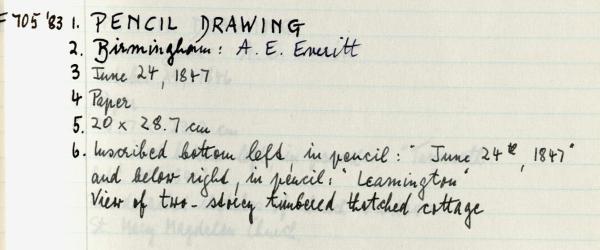 F705 '83 1. PENCIL DRAWING
2. Birmingham: A. E. Everitt
3 June 24, 1847
4 Paper
5. 20 x 28.7 cm
6. Inscribed bottom left, in pencil: "June 24th, 1847"
and below right, in pencil: "Leamington"
View of two-storey timbered thatched cottage
St Mary Magdalen Church